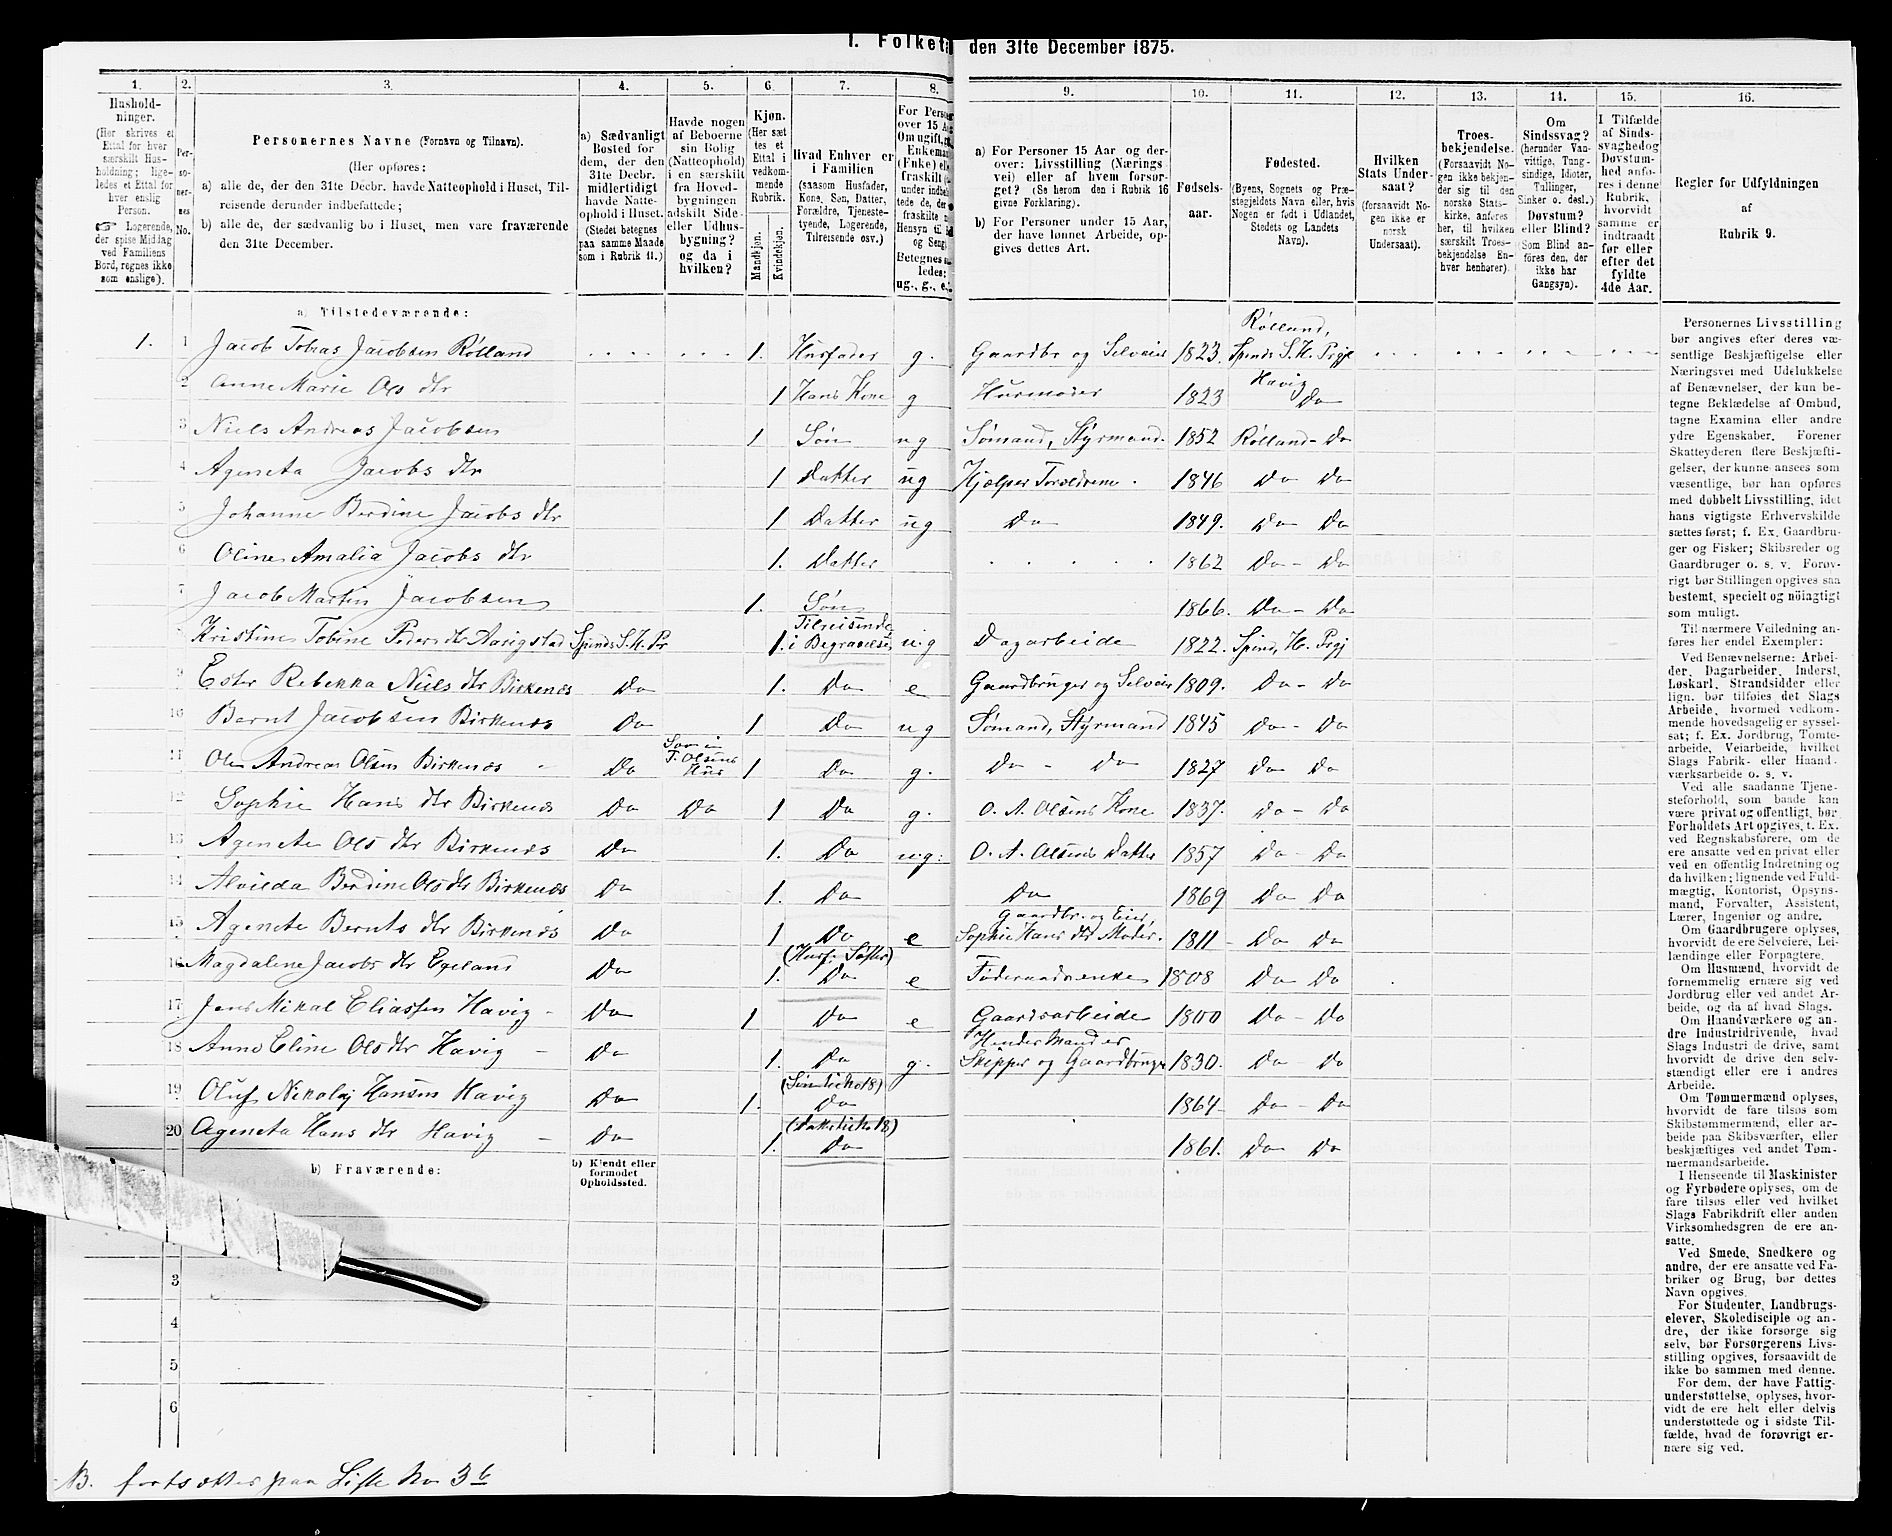 I. Folketæ den 31te December 1875.
1. 2. 3. 4. 5. 6. 7. 8. 9. 10. 11. 12. 13. 14. 15. 16.
Hushold-
ninger.
(Her skrives et
Ettal for hver
særskilt Hus-
holdning; lige-
ledes et Ettal for
hver enslig
Person.
☞ Logerende,
der spise Middag
ved Familiens
Bord, regnes ikke
som enslige).
Per-
so-
ner-
nes
No.
Personernes Navne (Fornavn og Tilnavn).
(Her opføres:
a) alle de, der den 31te Decbr. havde Natteophold i Huset, Til-
reisende derunder indbefattede;
b) alle de, der sædvanlig bo i Huset, men vare fraværende
den 31te December.
a) Sædvanligt
Bosted for
dem, der den
31te Decbr.
midlertidigt
havde Natte-
ophold i Huset.
(Stedet betegnes
paa samme Maade
som i Rubrik 11.)
Havde nogen
af Beboerne
sin Bolig
(Natteophold)
i en særskilt
fra Hoved-
bygningen
adskilt Side-
eller Udhus-
bygning?
og da i
hvilken?
Kjøn.
(Her sæt-
tes et
Ettal i
vedkom-
mende
Rubrik.
Mandkjøn.
Kvindekjøn.
Hvad Enhver er
i Familien
(saasom Husfader,
Kone, Søn, Datter,
Forældre, Tjeneste-
tyende, Logerende,
Tilreisende osv.)
For Perso
over 15 A
Om ugift,
Enkeman
(Fnke) el
fraskilt
under indbe
tede de, der
fraskilte
Hensyn til
og Seng
Betegnes
ledes:
ug., g., e.
a) For Personer 15 Aar og der-
over: Livsstilling (Nærings
vei) eller af hvem forsør-
get? (Se herom den i Rubrik 16
givne Forklaring).
b) For Personer under 15 Aar,
der have lønnet Arbeide, op-
gives dettes Art.
Fødsels-
aar.
Fødested.
(Byens, Sognets og Præ-
stegjeldets Navn eller, hvis
Nogen er født i Udlandet,
Stedets og Landets
Navn).
Hvilken
Stats Under-
saat?
(forsaavidt No-
gen ikke er
norsk
Undersaat).
Troes-
bekjendelse.
(Forsaavidt No-
gen ikke bekjen-
der sig til den
norske Stats-
kirke, anføres
her, til hvilken
særskilt Troes-
bekjendelse En-
hver henhører).
Om
Sindssvag?
(herunder Van-
vittige, Tung-
sindige, Idioter,
Tullinger,
Sinker o. desl.)
Døvstum?
eller Blind?
(Som Blind an-
føres den, der
ikke har
Gangsyn).
I Tilfælde
af Sinds-
svaghed og
Døvstum-
hed anfø-
res i denne
Rubrik,
hvorvidt
samme er
indtraadt
før eller
efter det
fyldte
4de Aar.
Regler for Udfyldningen
af
Rubrik 9.
a) Tilstedeværende:
1. 1 Jacob Tobias Jacobsen Rølland 1. Husfader g. Gaardbr og Selveier 1823. Rølland, Spinds S. H. Prgj
2 Anne Marie Ols dtr 1 Hans Kone g Husmoder 1823 Havig Do
3 Niels Andreas Jacobsen 1 Søn ug Sømand, Styrmand. 1852 Rølland - Do
4 Ageneta Jacobs dtr 1 Datter ug Hjælper Forældrene. 1846 Do Do
5 Johanne Berdine Jacobs dtr 1 Datter ug Do 1849. Do Do
6 Oline Amalia Jacobs dtr 1. Datter 1862 Do - Do
7 Jacob Martin Jacobsen 1. Søn 1866. Do - Do
Kristine Tobine Peders dtr Aavigstad Spinds S. H. Pr 1. Tilreisende i Begravelse ug Dagarbeide 1822. Spind, H. Prgj
9 Ester Rebekka Niels dtr Birkenæs Do 1. Do e Gaardbruger og Selveier 1809. Do - Do
10 Bernt Jacobsen Birkenæs Do 1 Do ug Sømand, Styrmand 1845 Do - Do
11 Ole Andreas Olsen Birkenæs - Do Sov i T. Olsens Hus 1 Do g. Do - Do 1827 Do Do
12 Sophie Hans dtr Birkenæs Do Do 1 Do g. O. A. Olsens Kone 1837. Do - Do
13 Agenete Ols dtr Birkenæs Do 1. Do ug. O. A. Olsens Datter 1857 Do - Do
14 Alvilda Berdine Ols dtr Birkenæs Do 1. Do Do 1869 Do Do
15 Agenete Bernts dtr Birkenæs Do 1 Do e Gaardbr. og Eier, Sophie Hans dtr Moder. 1811 - Do Do
16 Magdalene Jacobs dtr Egeland Do 1. (Husf. Søster) Do e Føderaadsenke 1808 Do Do
17 Jens Mikal Eliassen Havig - Do 1 Do e Gaardsarbeide 1800 Do - Do
18 Anne Eline Ols dtr Havig - Do 1. Do g. Hendes Mand er Skipper og Gaardbruger 1830. Do - Do
19 Oluf Nikolaj Hansen Havig Do 1. (Søn til No 18) Do 1864 Do - Do
20 Ageneta Hans dtr Havig - Do 1. (Datt. til No 18) Do 1861. Do Do
b) Fraværende:
b) Kjendt eller
formodet
Opholdssted.
3
4
5
6
NB. fortsættes paa Liste No 3b
Personernes Livsstilling
bør angives efter deres væ-
sentlige Beskjæftigelse eller
Næringsvei med Udelukkelse
af Benævnelser, der kun be-
tegne Beklædelse af Ombud,
tagne Examina eller andre
ydre Egenskaber. Forener
Skatteyderen flere Beskjæfti-
gelser, der kunne ansees som
væsentlige, bør han opføres
med dobbelt Livsstilling, idet
hans vigtigste Erhvervskilde
sættes først; f. Ex. Gaardbru-
ger og Fisker; Skibsreder og
Gaardbruger o. s. v. Forøv-
rigt bør Stillingen opgives saa
bestemt, specielt og nöiagtigt
som muligt.
Til nærmere Veiledning an-
føres her endel Exempler:
Ved Benævnelserne: Arbei-
der, Dagarbeider, Inderst,
Løskarl, Strandsidder eller
lign. bør tilføies det Slags
Arbeide, hvormed vedkom-
mende hovedsagelig er syssel-
sat; f. Ex. Jordbrug, Tomte-
arbeide, Veiarbeide, hvilket
Slags Fabrik- eller Haand-
værksarbeide o. s. v.
Ved alle saadanne Tjene-
steforhold, som baade kan
være privat og offentligt, bør
Forholdets Art opgives, t. Ex.
ved Regnskabsførere, om de
ere ansatte ved en privat eller
ved en offentlig Indretning og
da hvilken; lignende ved Fuld-
mægtig, Kontorist, Opsyns-
mand, Forvalter, Assistent,
Lærer, Ingeniør og andre.
Om Gaardbrugere oplyses,
hvorvidt de ere Selveiere, Lei-
lændinge eller Forpagtere.
Om Husmænd, hvorvidt de
fornemmelig ernære sig ved
Jordbrug eller ved andet Ar-
beide, og da af hvad Slags.
Om Haandværkere og an-
dre Industridrivende, hvad
Slags Industri de drive, samt
hvorvidt de drive den selv-
stændigt eller ere i andres
Arbeide.
Om Tømmermænd oplyses,
hvorvidt de fare tilsøs som
Skibstømmermænd, eller ar-
beide paa Skibsværfter, eller
beskjæftiges ved andet Tøm-
mermandsarbeide.
I Henseende til Maskinister
og Fyrbødere oplyses, om de
fare tilsøs eller ved hvilket
Slags Fabrikdrift eller anden
Virksomhedsgren de ere an-
satte.
Ved Smede, Snedkere og
andre, der ere ansatte ved Fa-
briker og Brug, bør dettes
Navn opgives.
For Studenter, Landbrugs-
elever, Skoledisciple og an-
dre, der ikke forsørge sig
selv, bør Forsørgerens Livs-
stilling opgives, forsaavidt de
ikke bo sammen med denne.
For dem, der have Fattig-
understøttelse, oplyses, hvor-
vidt de ere helt eller delvis
understøttede og i sidste Til-
fælde, hvad de forøvrigt er-
nære sig ved.